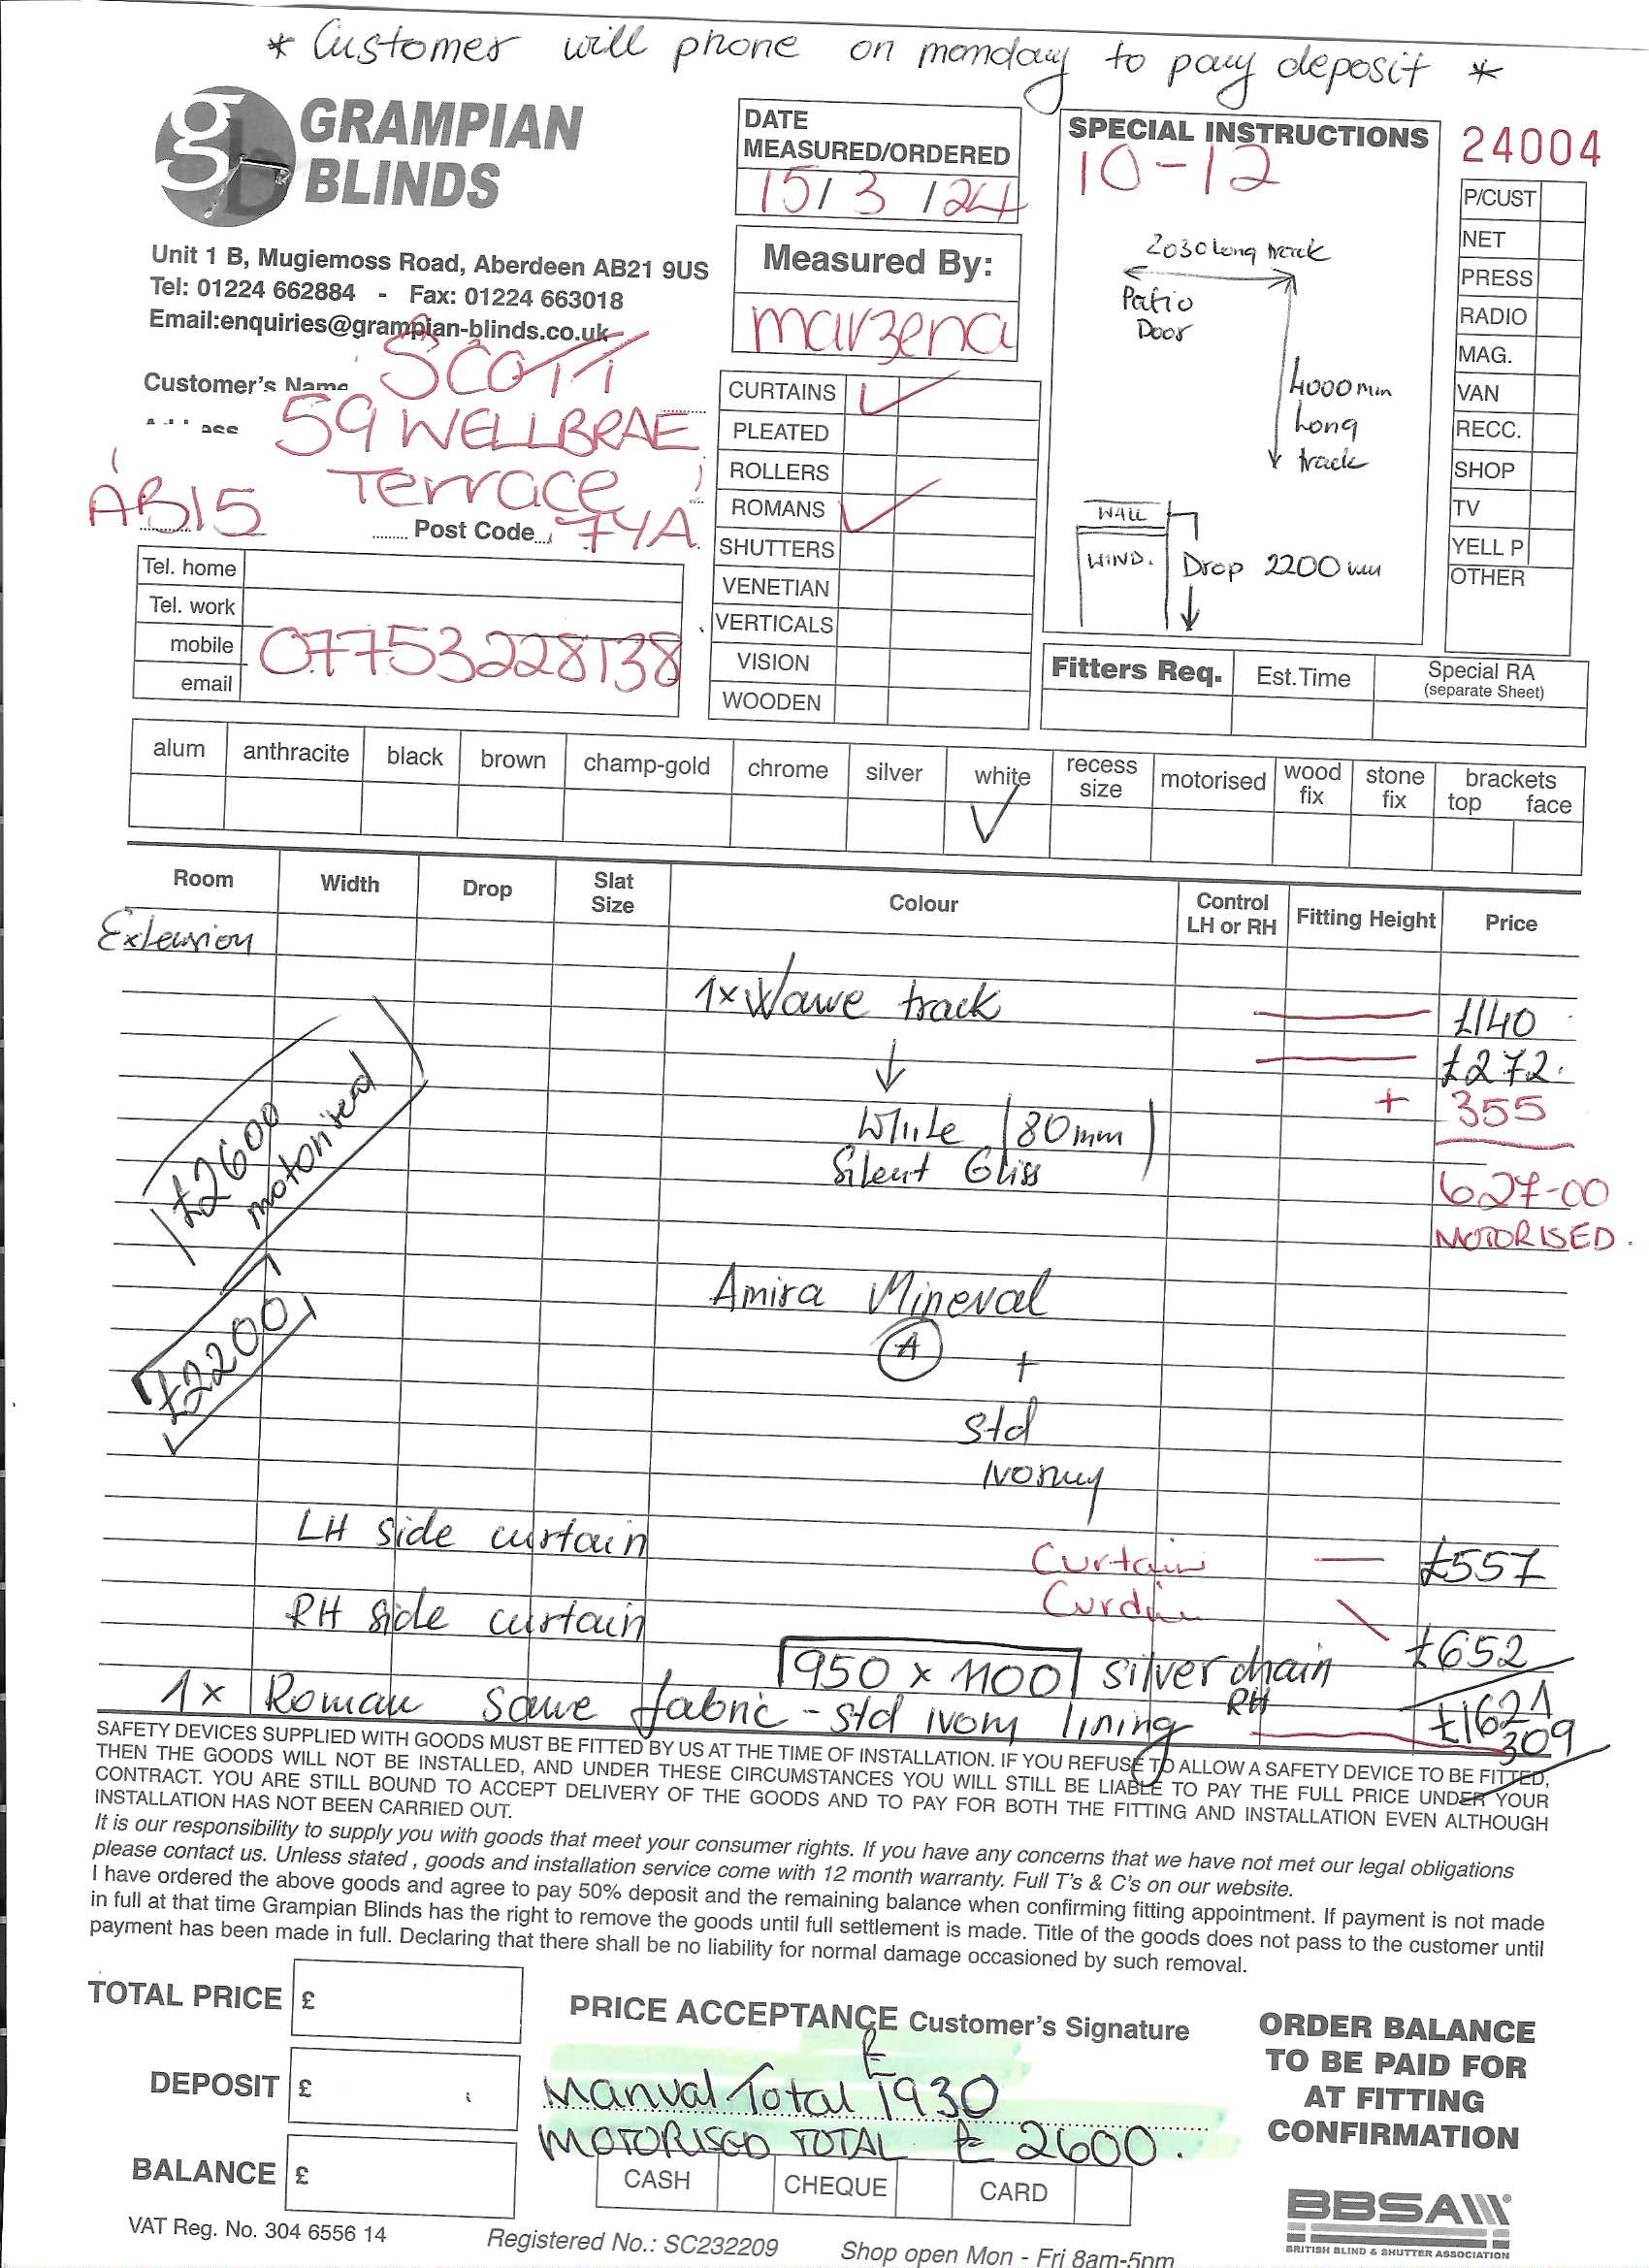 * Customer will phone on monday to pay deposit *
GRAMPIAN
BLINDS
Unit 1 B, Mugiemoss Road, Aberdeen AB21 9US
Tel: 01224 662884 - Fax: 01224 663018
Email:enquiries@grampian-blinds.co.uk
Customer's Name SCOTT
59 WELLBRAE
Terrace
AB15 Post Code 7YA
Tel. home
Tel. work
mobile 07753228138
email
DATE
MEASURED/ORDERED
15/3/24
Measured By:
marzena
CURTAINS ✓
PLEATED
ROLLERS
ROMANS ✓
SHUTTERS
VENETIAN
VERTICALS
VISION
WOODEN
SPECIAL INSTRUCTIONS
10-12
2030 long track
Patio
Door
4000mm
Long
track
WALL
WIND.
Drop 2200mm
24004
P/CUST
NET
PRESS
RADIO
MAG.
VAN
RECC.
SHOP
TV
YELL P
OTHER
Fitters Req. Est.Time Special RA
(separate Sheet)
alum anthracite black brown champ-gold chrome silver white recess size motorised wood fix stone fix brackets top face
✓
Room Width Drop Slat Size Colour Control LH or RH Fitting Height Price
Extension
1x Wawe track £140
£272
+ 355
White (80mm)
Silent Gliss
627-00
MOTORISED.
£2600
motorised
£2200
Amira Mineral
A +
std
ivory
LH side curtain Curtain £557
RH side curtain
£652
950 x 1100 silver chain
1x Roman same fabric - std ivory lining RH £1621
309
SAFETY DEVICES SUPPLIED WITH GOODS MUST BE FITTED BY US AT THE TIME OF INSTALLATION. IF YOU REFUSE TO ALLOW A SAFETY DEVICE TO BE FITTED,
THEN THE GOODS WILL NOT BE INSTALLED, AND UNDER THESE CIRCUMSTANCES YOU WILL STILL BE LIABLE TO PAY THE FULL PRICE UNDER YOUR
CONTRACT. YOU ARE STILL BOUND TO ACCEPT DELIVERY OF THE GOODS AND TO PAY FOR BOTH THE FITTING AND INSTALLATION EVEN ALTHOUGH
INSTALLATION HAS NOT BEEN CARRIED OUT.
It is our responsibility to supply you with goods that meet your consumer rights. If you have any concerns that we have not met our legal obligations
please contact us. Unless stated , goods and installation service come with 12 month warranty. Full T's & C's on our website.
I have ordered the above goods and agree to pay 50% deposit and the remaining balance when confirming fitting appointment. If payment is not made
in full at that time Grampian Blinds has the right to remove the goods until full settlement is made. Title of the goods does not pass to the customer until
payment has been made in full. Declaring that there shall be no liability for normal damage occasioned by such removal.
TOTAL PRICE £
DEPOSIT £
BALANCE £
PRICE ACCEPTANCE Customer's Signature
Manual Total £1930
MOTORISED TOTAL £ 2600.
CASH CHEQUE CARD
ORDER BALANCE
TO BE PAID FOR
AT FITTING
CONFIRMATION
BBSA
BRITISH BLIND & SHUTTER ASSOCIATION
VAT Reg. No. 304 6556 14
Registered No.: SC232209
Shop open Mon - Fri 8am-5pm